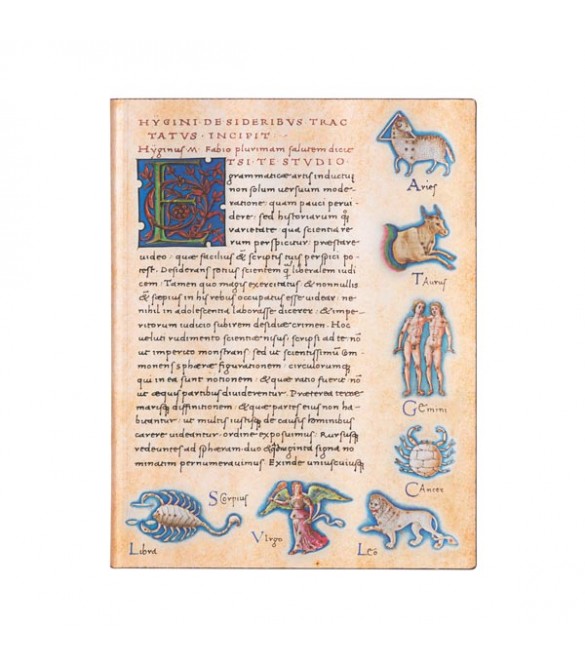 HYGINI·DE·SIDERIBVS TRAC
TATVS·INCIPIT·
Hyginus·M·Fabio plurimam salutem dicit
ETSI·TE·STVDIO·
grammaticæ artis inductū
non solum versuum mode-
ratione: quam pauci pervi-
dere: sed historiarum q̄
varietate qua scientia re
rum perspicitur, præstare
video: quæ facilius & scriptis tuis perspici po-
test. Desiderans potius scientem q̄ liberalem iudi
cem: Tamen quo magis exercitatus & nonnullis
& sæpius in his rebus occupatus esse videar: ne
nihil in adolescentia laborasse dicerer: & impe-
ritorum iudicio subirem desidiæ crimen. Hoc
veluti rudimento scientiæ nisus: scripsi ad te: nō
ut imperito monstrans, sed ut scientissimū com-
monens sphæræ figurationem: circulorumq̄
qui in ea sunt notionem: & quæ ratio fuerit nō
ut æquis partibus dividerentur. Præterea terræ
marisq̄ diffinitionem: & quæ partes eius non ha-
bitantur: ut multis iustisq̄ de causis hominibus
carere videantur: ordine exposuimus. Rursusq̄
redeuntes ad sphæram duo & quadraginta signa no
minatim pernumeravimus. Exinde uniuscuiusq̄
Aries
Taurus
Gemini
Cancer
Leo
Virgo
Scorpius
Libra